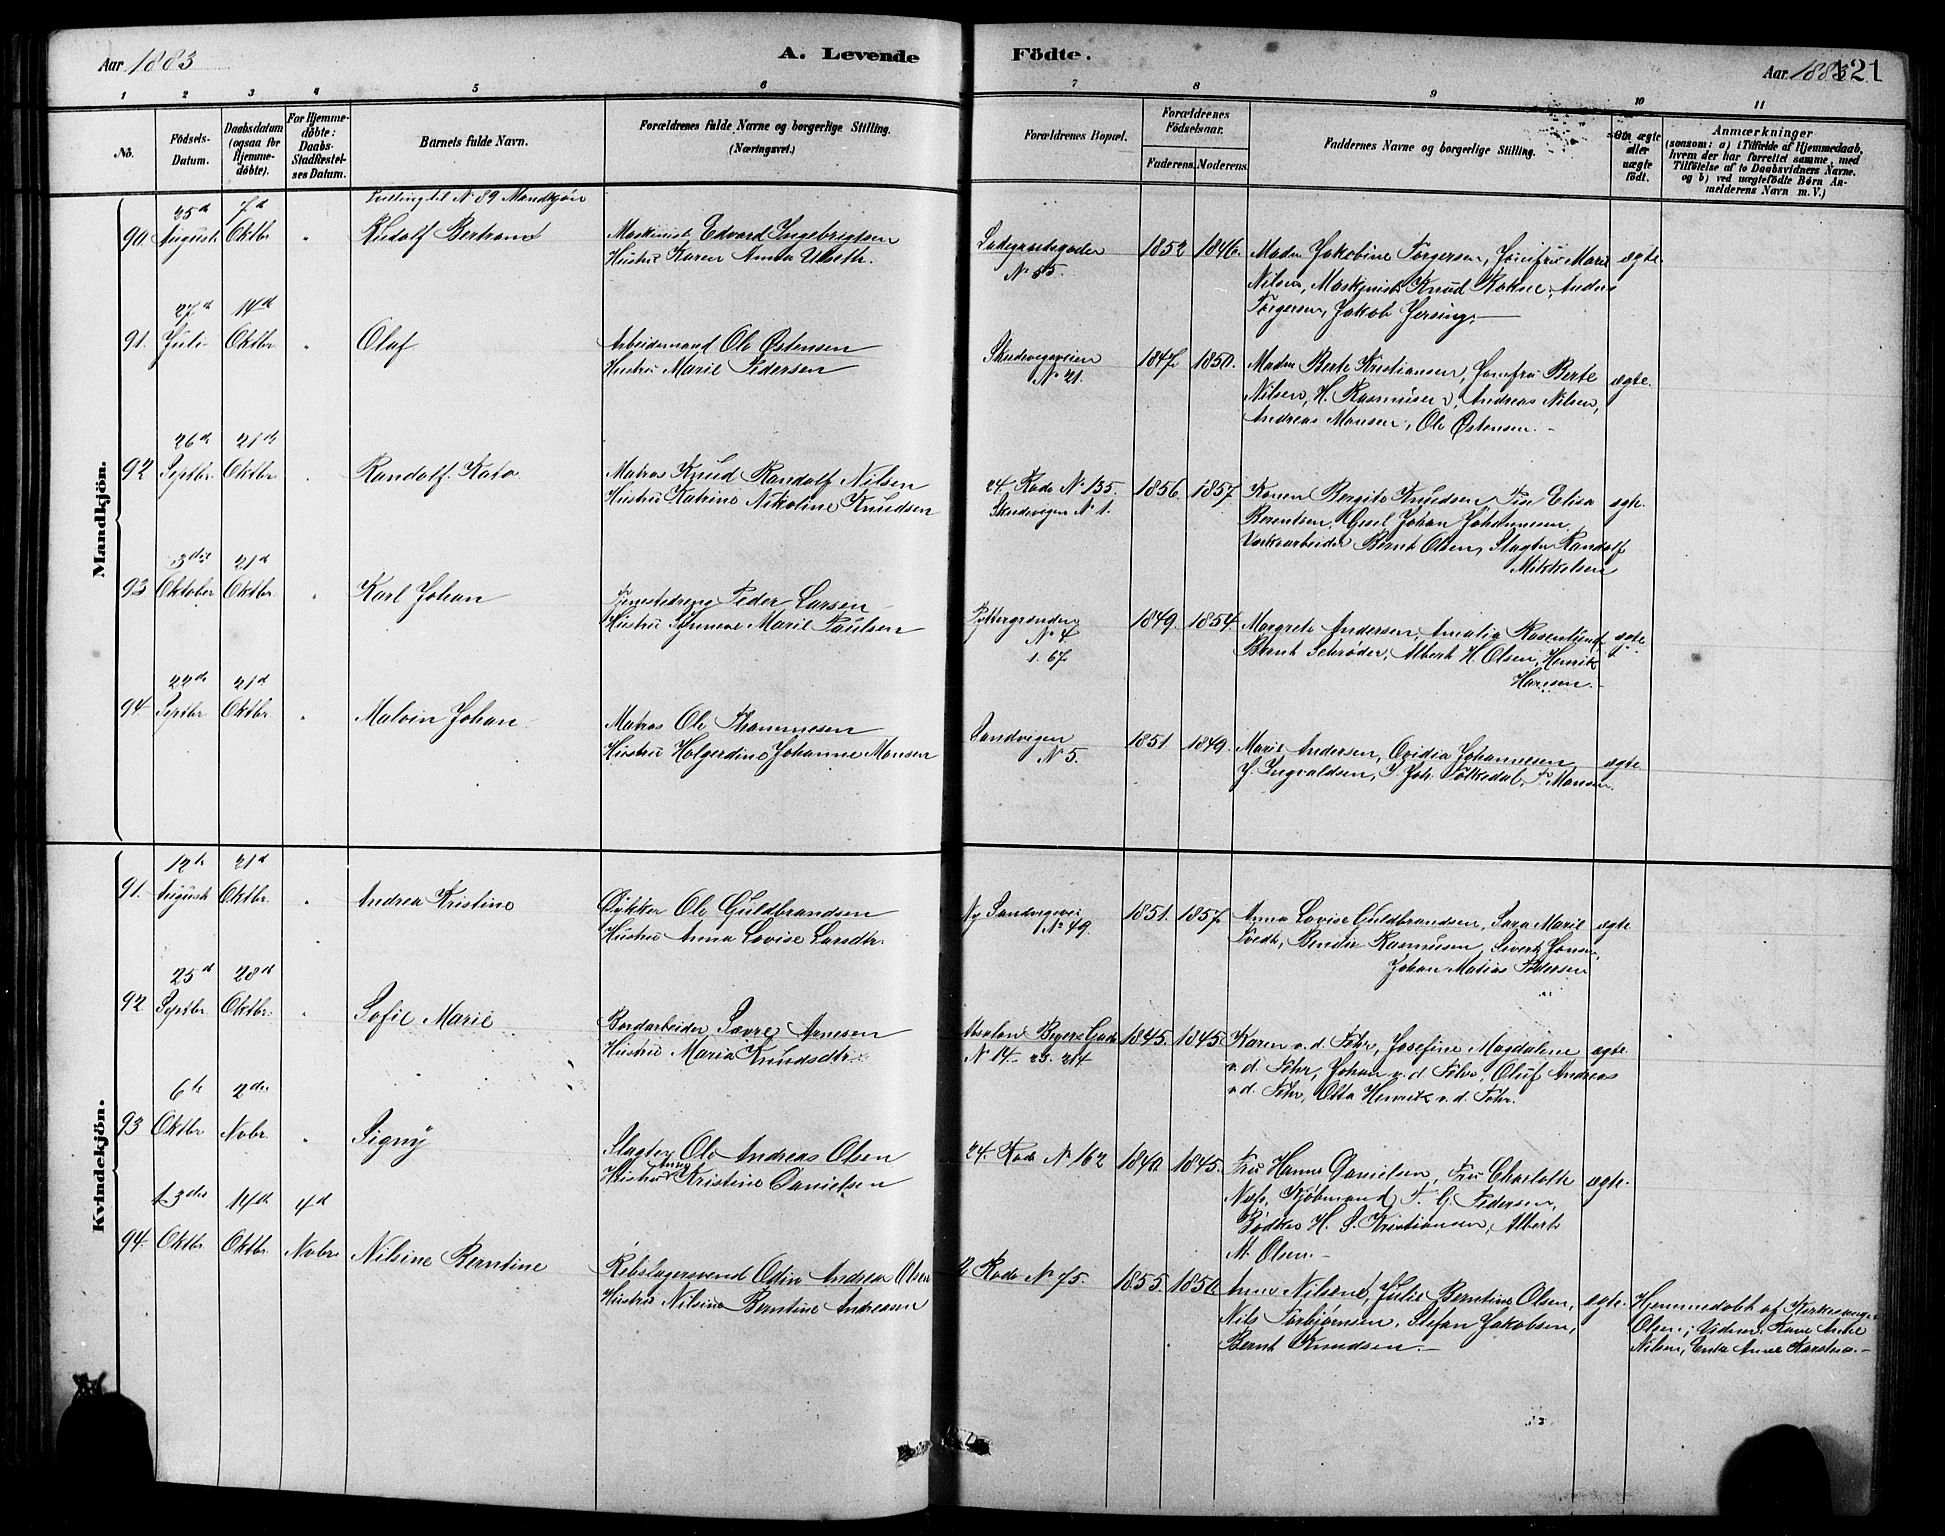 Aar 1883
A. Levende
Födte.
Aar 1883
121
1 2 3 4 5 6 7 8 9 10 11
No.
Födsels-
Datum.
Daabsdatum
(ogsaa for
Hjemme-
döbte).
For Hjemme-
döbte:
Daabs-
Stadfæstel-
ses Datum.
Barnets fulde Navn.
Forældrenes fulde Navne og borgerlige Stilling.
(Næringsvei.)
Forældrenes Bopæl.
Forældrenes
Födselsaar.
Faderens. Moderens.
Faddernes Navne og borgerlige Stilling.
Om ægte
eller
uægte
födt.
Anmærkninger
(saasom: a) i Tilfælde af Hjemmedaab,
hvem der har forrettet samme, med
Tilföielse af to Daabsvidners Navne.
og b) ved uægtefödte Börn An-
melderens Navn m. V.)
Mandkjön.
Tvilling til N 89 Mandkjön
90 25d August 7d Oktbr. " Rudolf Bertram
Maskinist Edvard Ingebrigtsen
Hustru Karen Anna
Ladegaardsgaden
N 55.
1852 1846.
Madm Jakobine Torgersen, Jomfru Marie
Nilsen, Maskinist Knud Roksne, Anders
Torgersen, Jakob Jersing.
ægte.
91. 27d Juli 14d Oktbr. " Olaf
Arbeidsmand Ole Østensen
Hustru Marie Pedersen
Skudevigsveien
N 21.
1847. 1850.
Madm Berte Kristiansen, Jomfru Berte
Nilsen, H. Rasmussen, Andreas Nilsen,
Andreas Monsen, Ole Østensen.
ægte.
92 26de Septbr. 21de Oktbr. " Randolf Kato
Matros Knud Randolf Nilsen
Hustru Katrine Nikoline Knudsen
24. Rode N 135.
Skudevigen N 1.
1856. 1857.
Karen Bergite Knudsen, Elisa
Berentsen, Johan Johannesen
Værksarbeider Bernt Olsen, Slagter Randolf
Mikkelsen
ægte.
93 3die Oktober 21d Oktbr. " Karl Johan
Tjenestedreng Peder Larsen
Hustru Synneve Marie Paulsen
Pyttergrenden
N 4
1. 67.
1849. 1854.
Margrete Andersen, Amalia Rosenlund,
Bernt Schrøder, Albert H. Olsen, Henrik
Hansen.
ægte.
94. 22de Septbr 21d Oktbr. " Malvin Johan
Matros Ole Thommesen
Hustru Holgerdine Johanne Monsen
Sandvigen
N 5.
1851 1849.
Marie Andersen, Ovidia Johannesen
J. Ingvaldsen, J. Joh. Tolksdal, T. Monsen.
ægte.
Kvindekjön.
91. 12te August 21d Oktbr. " Andrea Kristine
Dykker Ole Guldbrandsen
Hustru Anna Lovise Larsdtr.
Ny Sandvigsvei
N 49.
1851. 1857.
Anna Lovise Guldbrandsen, Sara Marie
Tvedt, Bendix Rasmussen, Sivert Jonsen,
Johan Matias Pedersen
ægte
92. 25d Septbr. 28d Oktbr. " Sofie Marie
Bordarbeider Sævre Arnesen
Hustru Maria Knudsdtr.
Absalon Beyers Gade
N 14. 23. 214
1845. 1845.
Karen v. d. Fehr, Josefine Magdalene
v. d. Fehr, Johan v. d Fehr, Oluf Andreas
v. d. Fehr, Otto Henrik v. d. Fehr.
ægte.
93 6te Oktbr 2den Nvbr. " Signy
Slagter Ole Andreas Olsen
Hustru Anna Kristine Danielsen
24. Rode N 162
1840 1845.
Fru Hanna Danielsen, Fru Charlotte
Næss, Kjøbmand T. G. Pedersen,
Bødker H. S. Kristiansen, Albert
M. Olsen.
ægte.
94. 13de Oktbr. 14de Oktbr. 4d Nvbr. Nilsine Berntine
Rebslagersvend Odin Andreas Olsen
Hustru Nilsine Berntine Andreasen
2 Rode N 75.
1855. 1850
Anna Nilsen, Julie Berntine Olsen,
Nils Torbjørnsen, Stefan Jakobsen,
Bernt Knudsen.
ægte.
Hjemmedøbt af Kirkesanger
Olsen; Vidner: Kone Anne
Nilsen, Enke Anne